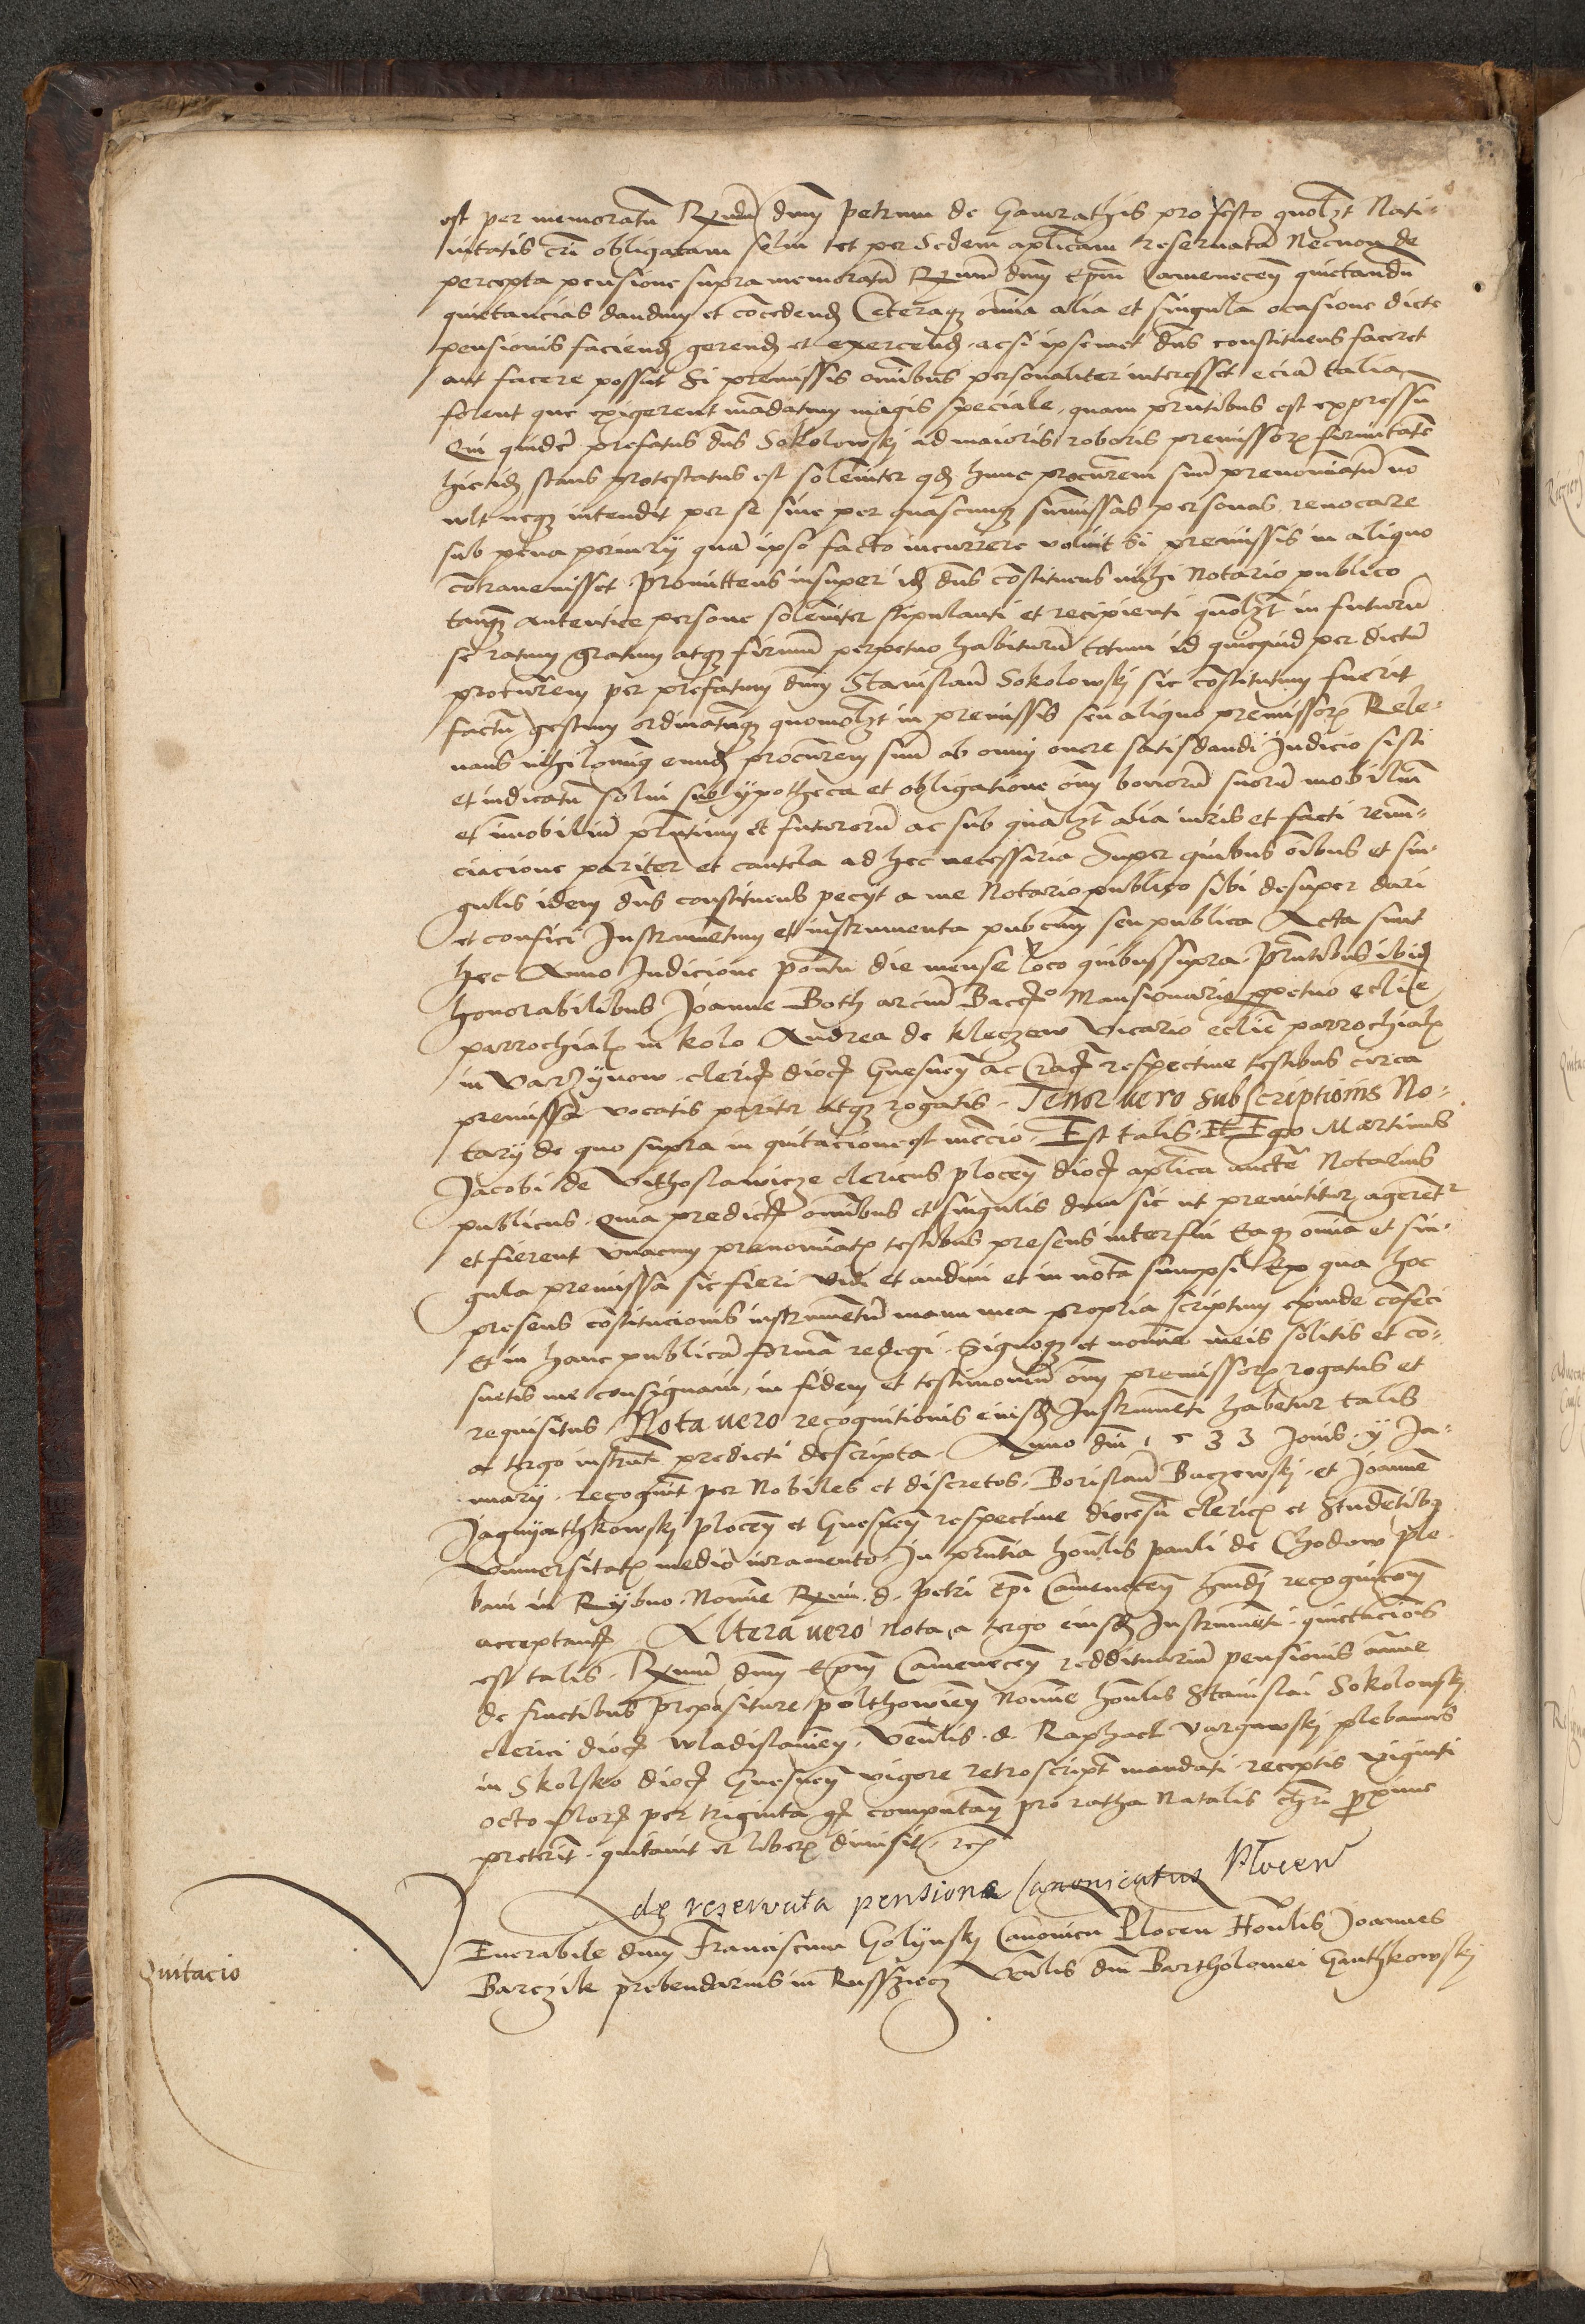 est per memoratū Rndū dnm̄ Petrum de Gamrathis pro festo quol3t Nati-
uitatis cri obligatam solui et per Sedem aplicam reseruatā Necnon de
percepta pensione supra memoratū Rnum dnm Epm Camenecen̄ quietandū
quietancias dandum et cōcedend Ceteraq3 omnia alia et singula ocasione dicte
pensionis faciend gerend et exercend, acsi ipsemet dns constituens faceret
aut facere posset Si premissis omībus personaliter interesset eciā talia
forent que exigerent mādatum magis speciale, quam pn̄tibus est expressū
Qui quidē prefatus dns Sokolowskj ad maioris roboris premissor firmitatē
hictid stans protestatus est solēniter q3 hunc procurem suū prenomiatū nō
wlt neq3 intendit per se siue per quascunq3 summissas personas reuocare
sub pena periurij quā ipso facto incurrere voluit Si premissis in aliquo
cōtrauenisset. Promittens insuper id dns cōstituens mihi Notario publico
tanq3 autentice persone solēniter stipulanti et recipienti quol3t in futurū
se ratum gratum atq3 firmum perpetuo habiturū totum id quicquid per dictū
procurem per prefatum dnm Stanislaū Sokolowskj sic cōstitutum fuerit
factū gestum ordinatūq3 quomol3t in premissis seu aliquo premissor Rele-
uans nihilominq eund procurem suū ab omni onere satisdandi Iudicio sisti
et iudicatū solui sub ypotheca et obligatione oīm bonorū suorū mobiliū
et imobiliū pn̄tium et futurorū ac sub qual3t alia iuris et facti renū-
ciacione pariter et cautela ad hec necessaria Super quibus oībus et sin-
gulis idem dns constituens pecijt a me Notario publico sibi desuper dari
et confici Instrumētum et instrumenta pubcum seu publica Acta sunt
hec Anno Indicione pontu die mense loco quibus supra. Pn̄tibus ibid
honorabilibus Joanne Both arciū Baccro Mansionario ppetuo eclie
parrochial in Kolo Andrea de Kleczew Vicario eclie parrochial
in Varzijnow. cleric dioc Gnesnen̄ ac Crac respectiue testibus circa
premissa vocatis pariter atq3 rogatis. Tenor uero subscriptionis No-
tarij de quo supra in quitacione est mēcio. Est talis. Et Ego Martinus
Jacobi de Vithoslawicze clericus plocen̄ dioc aplica aucte Notarius
publicus. Quia predict omībus et singulis dum sic ut premittitur agerentr
et fierent vnacum prenomiat testibus presens interfui Eaq3 omīa et sin-
gula premissa sic fieri vidi et audiui et in notā sumpsi Ex qua hoc
presens cōstitucionis instrumētū manu mea propria scriptum exinde cōfeci
Et in hanc publicā formā redegi. Signoq3 et nomīe meis solitis et con-
suetis me consignaui, in fidem et testimoniū oīm premissor rogatus et
requisitus. Nota uero recognitionis eiusd Instrumēti habetur talis
a tergo instrumti predicti descripta. Anno dni 1533 Jouis. ij Ja-
nuarij. recognit per Nobiles et discretos. Borislaū Baczewskj. et Joannē
Jagnijathkowskj plocen̄ et Gnesnen̄ respectiue diocesū cleric et studētib3
Vniuersitat medio iuramento. In pn̄tia hon̄lis Pauli de Chodow ple-
bani in Rijbno. Nomīe Rmi. d. Petri Epi Camenecen̄ hmdi recognicōm̄
acceptant. Altera uero nota a tergo eiusd Instrumēti. quietacionis
est talis. Rmū dnm Epm Camenecen̄ reddituariū pensionis annue
de fructibus Prepositure polthowien̄ Nomīe hon̄lis Stanislai Sokolowskj
clerici dioc Wladislauien̄. Ven̄lis. d. Raphael Vargawskj plebanus
in Skolsko dioc Gnesnen̄ vigore retroscript mandati receptis viginti
octo Flor per triginta g computan̄ pro ratha Natalis chri proxime
preterit. quitauit et liber dimisit, rec
de reservata pensione Canonicatus Plocen
Enerabile dnm̄ Franciscum Golijnskj Canonicu Plocen Hon̄lis Joannes
Quitacio
Barczik prebendarius in Russziecz Ven̄lis dni Bartholomei Ganthkowskj